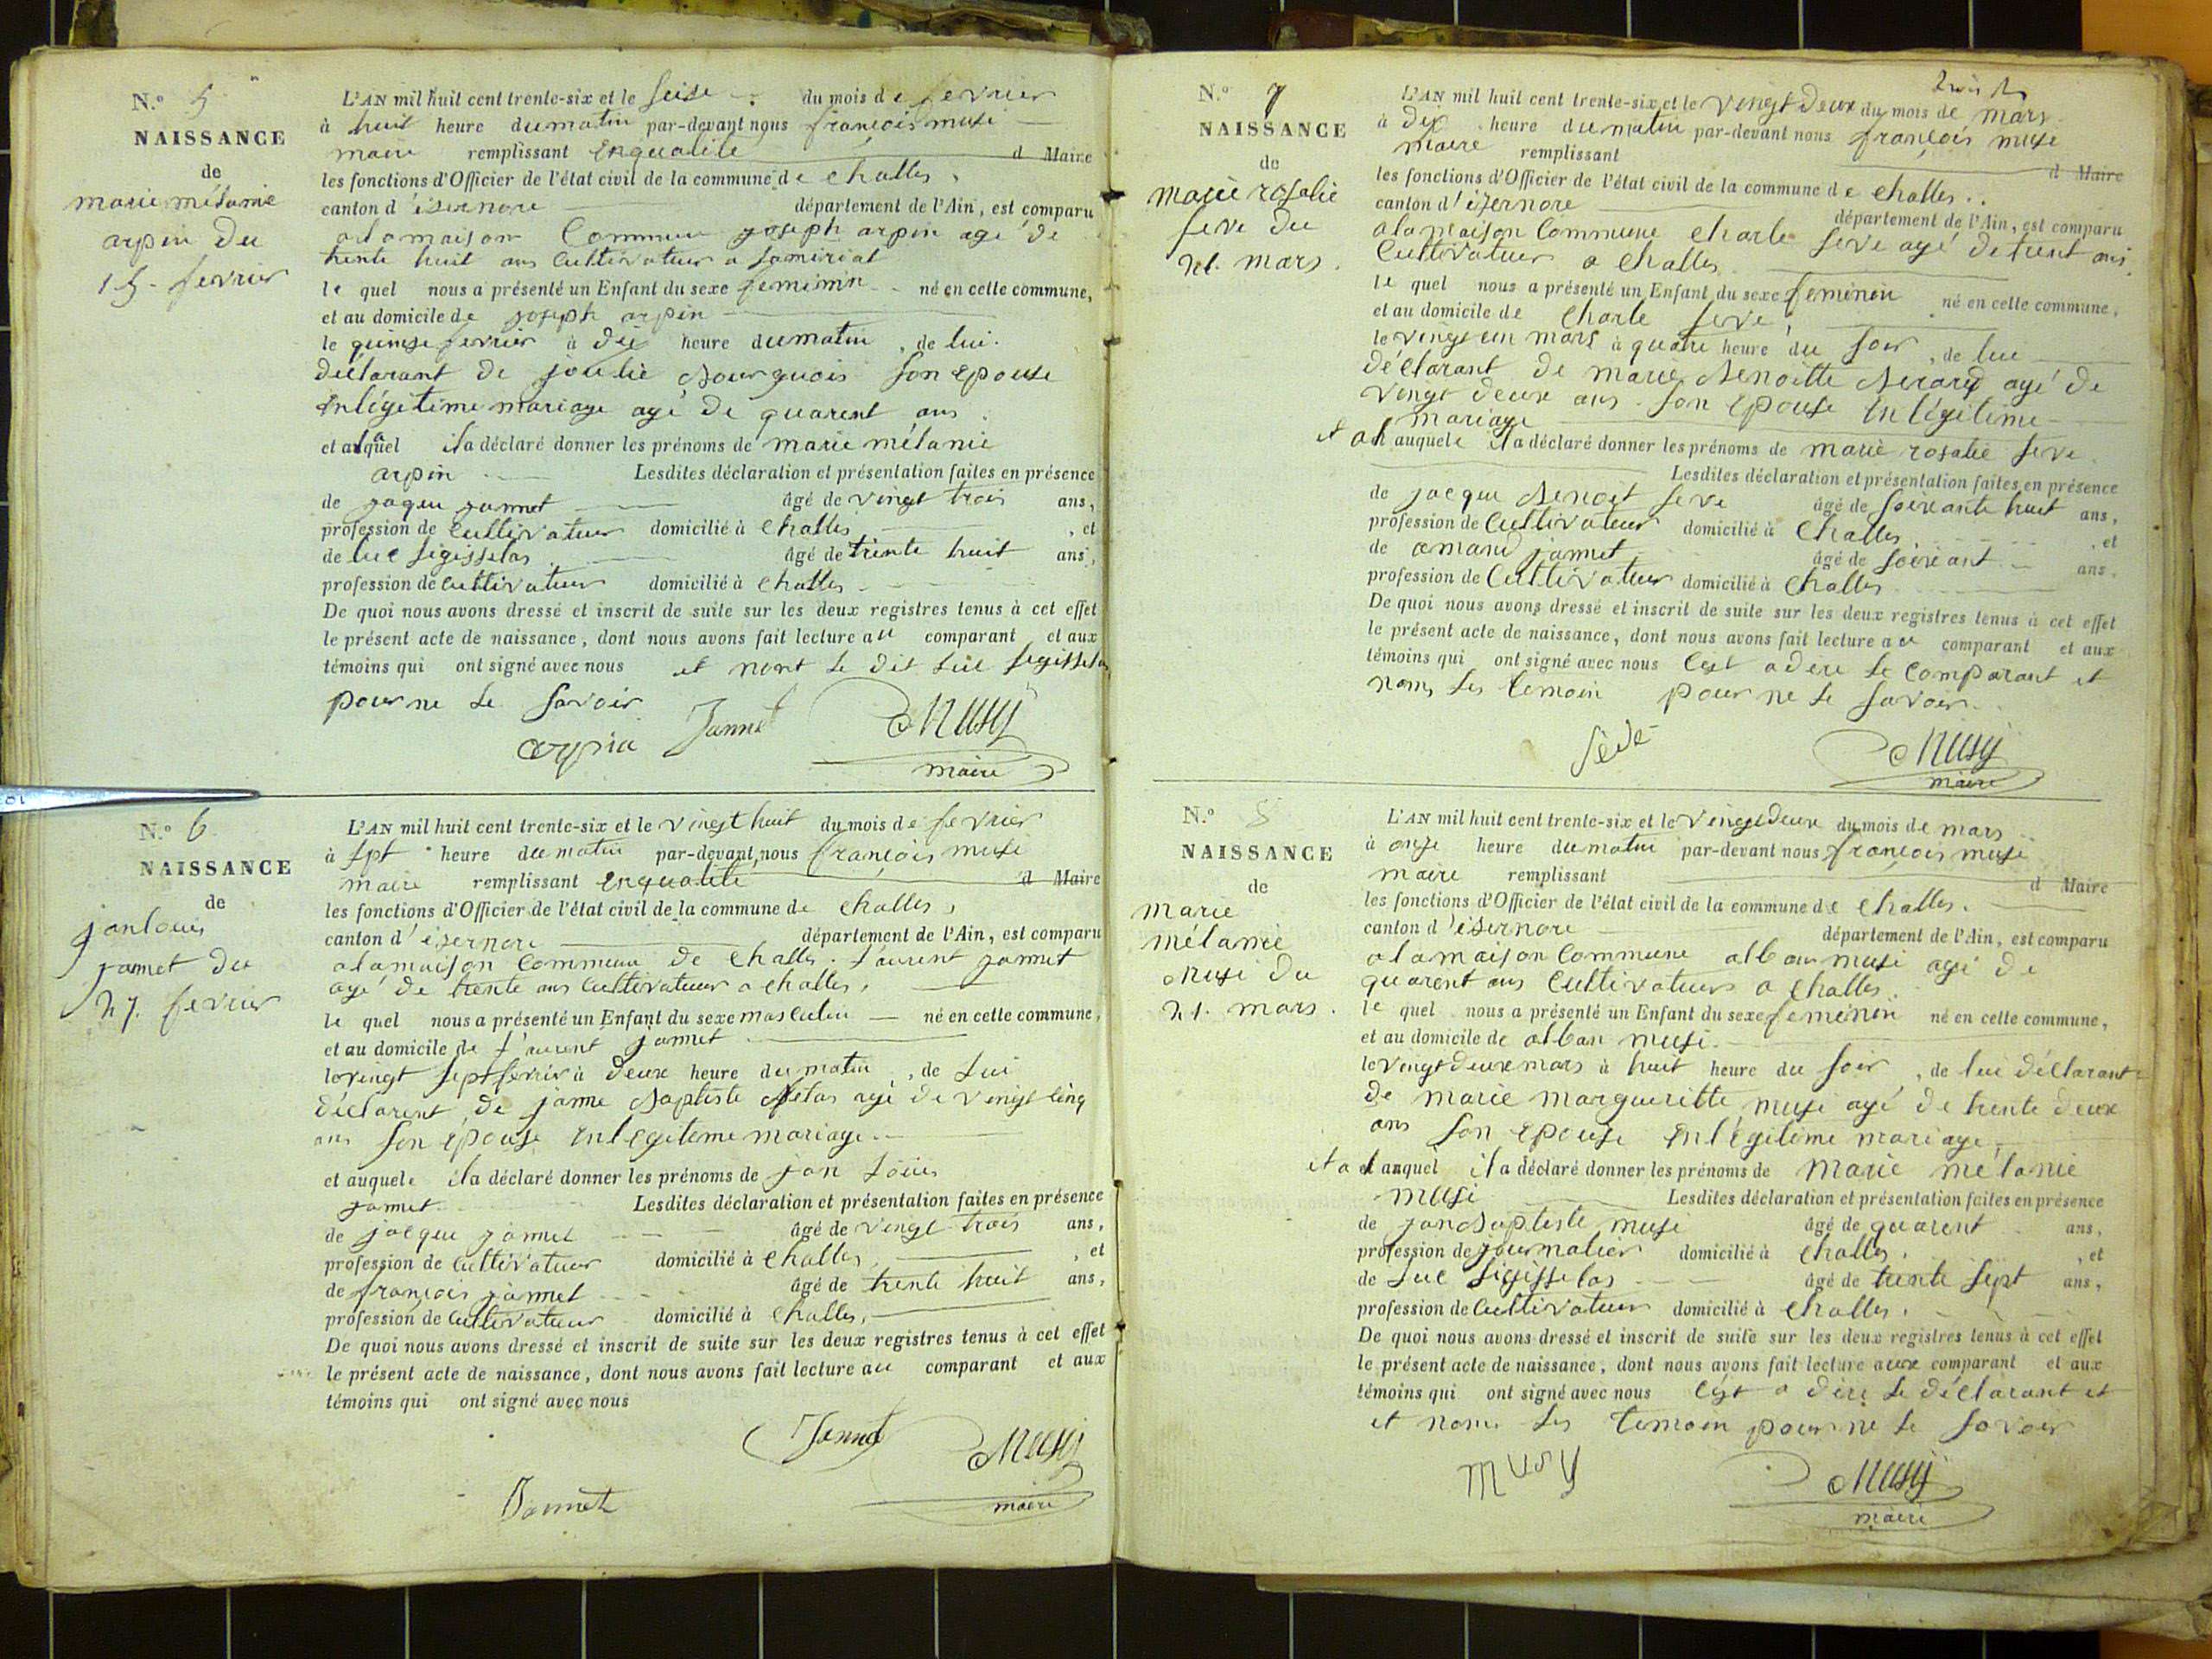 N.º 5
NAISSANCE
de
marie mélanie
arpin du
15. fevrier
L'AN mil huit cent trente-six et le seise du mois de fevrier
à huit heure dumatin par-devant nous françois musi
maire remplissant enqualité d Maire
les fonctions d'Officier de l'état civil de la commune de challes,
canton d'isernore département de l'Ain, est comparu
alamaison Commun joseph arpin agé de
trente huit ans Cultivateur a samiriat
le quel nous a présenté un Enfant du sexe feminin né en cette commune,
et au domicile de joseph arpin
le quinse fevrier à dix heure dumatin, de lui
déclarant de joulie Bourguois son epouse
enlégitime mariage agé de quarent ans
et alaquel il a déclaré donner les prénoms de marie mélanie
arpin Lesdites déclaration et présentation faites en présence
de jaque jannet âgé de vingt trois ans,
profession de Cultivateur domicilié à challes, et
de luc sigisselas âgé de trente huit ans,
profession de cultivateur domicilié à challes
De quoi nous avons dressé et inscrit de suite sur les deux registres tenus à cet effet
le présent acte de naissance, dont nous avons fait lecture au comparant et aux
témoins qui ont signé avec nous et nont le dit luc segisselas
pour ne le savoir
arpin Jannet Musy
maire
N.º 6
NAISSANCE
de
janlouis
jamet du
27. fevrier
L'AN mil huit cent trente-six et le vingt huit du mois de fevrier
à sept heure dumatin par-devant nous françois musi
maire remplissant enqualité d Maire
les fonctions d'Officier de l'état civil de la commune de challes,
canton d'isernore département de l'Ain, est comparu
alamaison Commun de challes. laurent jannet
agé de trente ans Cultivateur a challes,
le quel nous a présenté un Enfant du sexe masculin né en cette commune,
et au domicile de laurent jannet
levingt sept fevrier à deux heure du matin, de lui
déclarent de janne Baptiste agé de vingt cinq
ans son épouse enlegiteme mariage
et auquele il a déclaré donner les prénoms de jan Louis
jamet. Lesdites déclaration et présentation faites en présence
de jacque jannet âgé de vingt trois ans,
profession de Cultivateur domicilié à challes, et
de françois jannet âgé de trente huit ans,
profession de Cultivateur domicilié à challes,
De quoi nous avons dressé et inscrit de suite sur les deux registres tenus à cet effet
le présent acte de naissance, dont nous avons fait lecture au comparant et aux
témoins qui ont signé avec nous
Jannet Musy
Jannet maire
N.º 7
NAISSANCE
de
marie rosalie
seve du
21. mars.
L'AN mil huit cent trente-six et le vingt deux du mois de mars
à dix heure dumatin par-devant nous françois musi
maire remplissant d Maire
les fonctions d'Officier de l'état civil de la commune de challes.
canton d'isernore département de l'Ain, est comparu
alamaison Commune charle seve agé de trent ans
Cultivateur a challes
le quel nous a présenté un Enfant du sexe feminin né en cette commune,
et au domicile de charle seve,
le vingt un mars à quatre heure du soir, de lui
déclarant de marie Benoitte agé de
vingt deux ans son epouse enlégitime
mariage
et al auquele il a déclaré donner les prénoms de marie rosalie seve
Lesdites déclaration et présentation faites en présence
de jacque Benoit seve âgé de soixante huit ans,
profession de Cultivateur domicilié à challes, et
de amand jannet âgé de soixant ans,
profession de Cultivateur domicilié à challes
De quoi nous avons dressé et inscrit de suite sur les deux registres tenus à cet effet
le présent acte de naissance, dont nous avons fait lecture au comparant et aux
témoins qui ont signé avec nous cest adere le comparant et
nons les temoin pour ne le savoir
seve Musy
maire
N.º 8
NAISSANCE
de
marie
mélanie
musi du
21. mars.
L'AN mil huit cent trente-six et le vingt deux du mois de mars
à onse heure dumatin par-devant nous françois musi
maire remplissant d Maire
les fonctions d'Officier de l'état civil de la commune de challes.
canton d'isernore département de l'Ain, est comparu
alamaison Commune alban musi agé de
quarent ans Cultivateur a challes.
le quel nous a présenté un Enfant du sexe feminin né en cette commune,
et au domicile de alban musi.
le vingt deux mars à huit heure du soir, de lui déclarant
de marie margueritte musi agé de trente deux
ans son epouse enlégitime mariage,
et a et auquel il a déclaré donner les prénoms de marie mélanie
musi Lesdites déclaration et présentation faites en présence
de jan Baptiste musi âgé de quarent ans,
profession de journalier domicilié à challes, et
de Luc sigisselas âgé de trente sept ans,
profession de Cultivateur domicilié à challes.
De quoi nous avons dressé et inscrit de suite sur les deux registres tenus à cet effet
le présent acte de naissance, dont nous avons fait lecture aux comparant et aux
témoins qui ont signé avec nous cest a dire le déclarant et
et nons les temoin pour ne le savoir
musy Musy
maire